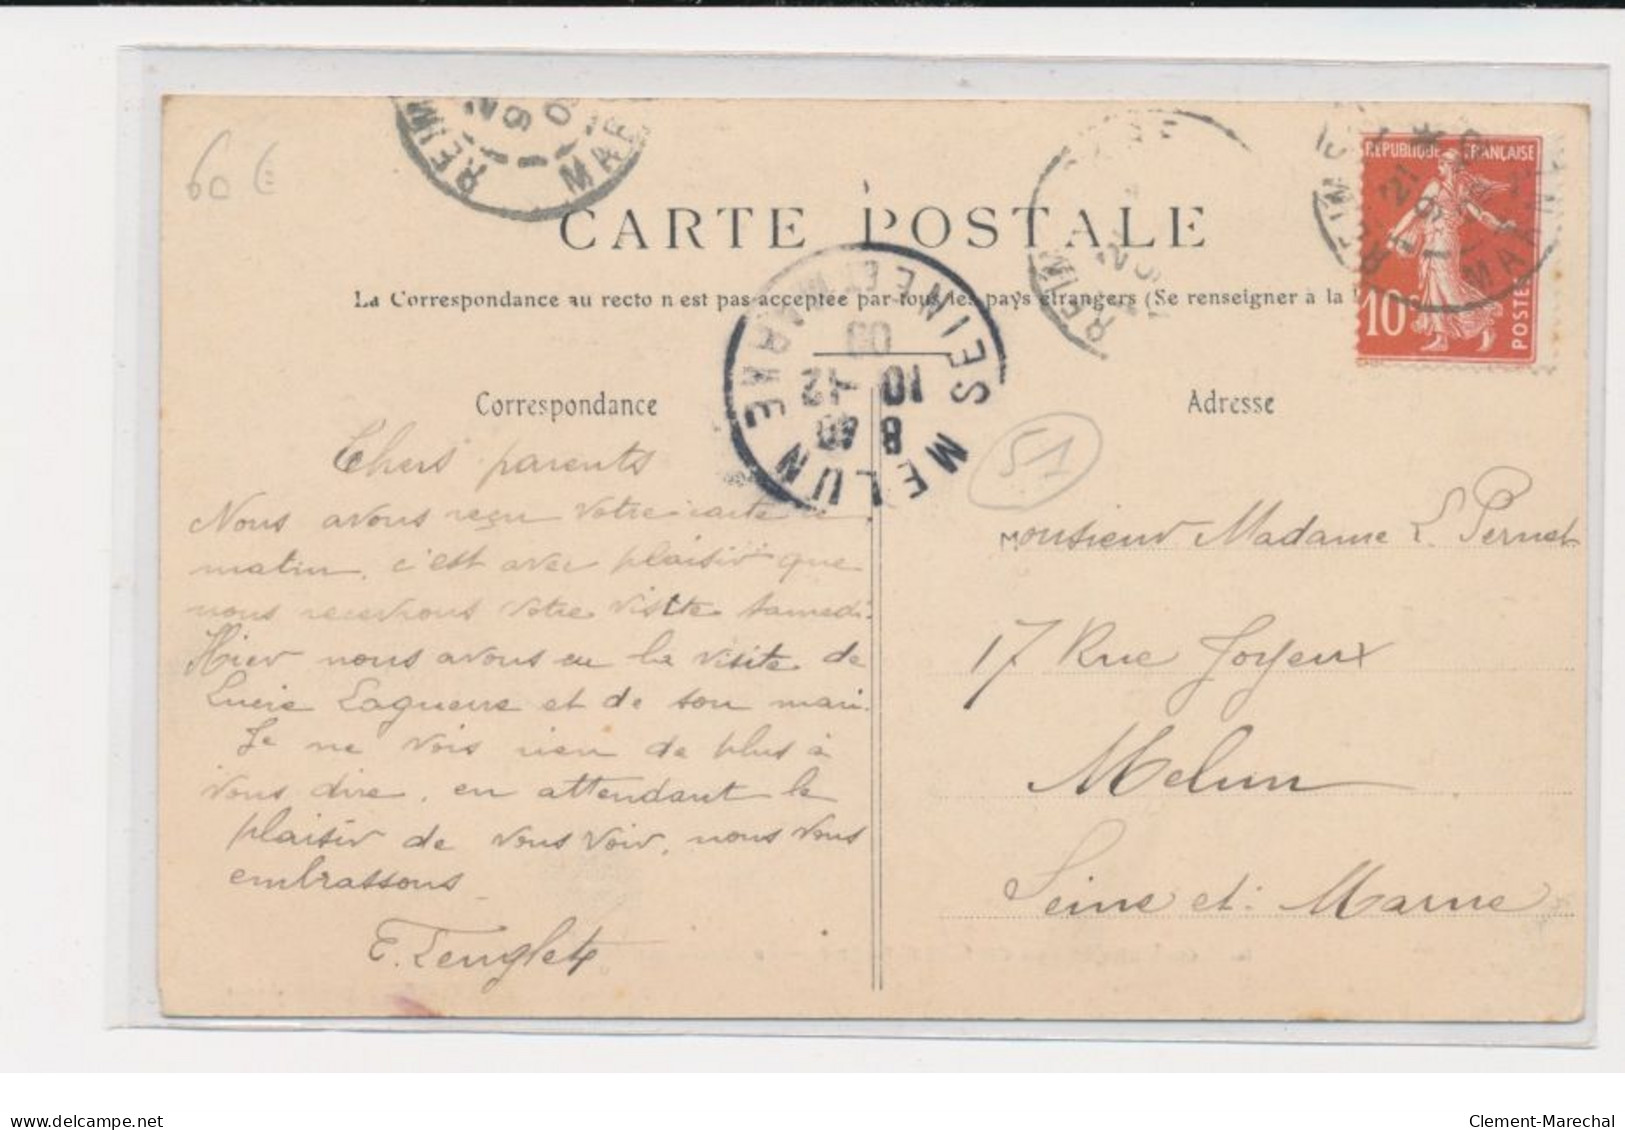 60 €
REIMS
MAR
CARTE POSTALE
La Correspondance au recto n'est pas acceptée par tous les pays étrangers (Se renseigner à la
REPUBLIQUE FRANÇAISE
10
POSTES
REIMS
MARNE
MELUN
SEINE ET MARNE
8 40
10 12
09
Correspondance
Adresse
51
Chers parents
Nous avons reçu votre carte ce
matin, c'est avec plaisir que
nous recevrons votre visite samedi.
Hier nous avons eu la visite de
Lucie Laguerre et de son mari.
Je ne vois rien de plus à
vous dire, en attendant le
plaisir de vous voir, nous vous
embrassons
E. Tenglet
Monsieur Madame L. Pernet
17 Rue Joyeux
Melun
Seine et Marne
www.delcampe.net
Clement-Marechal